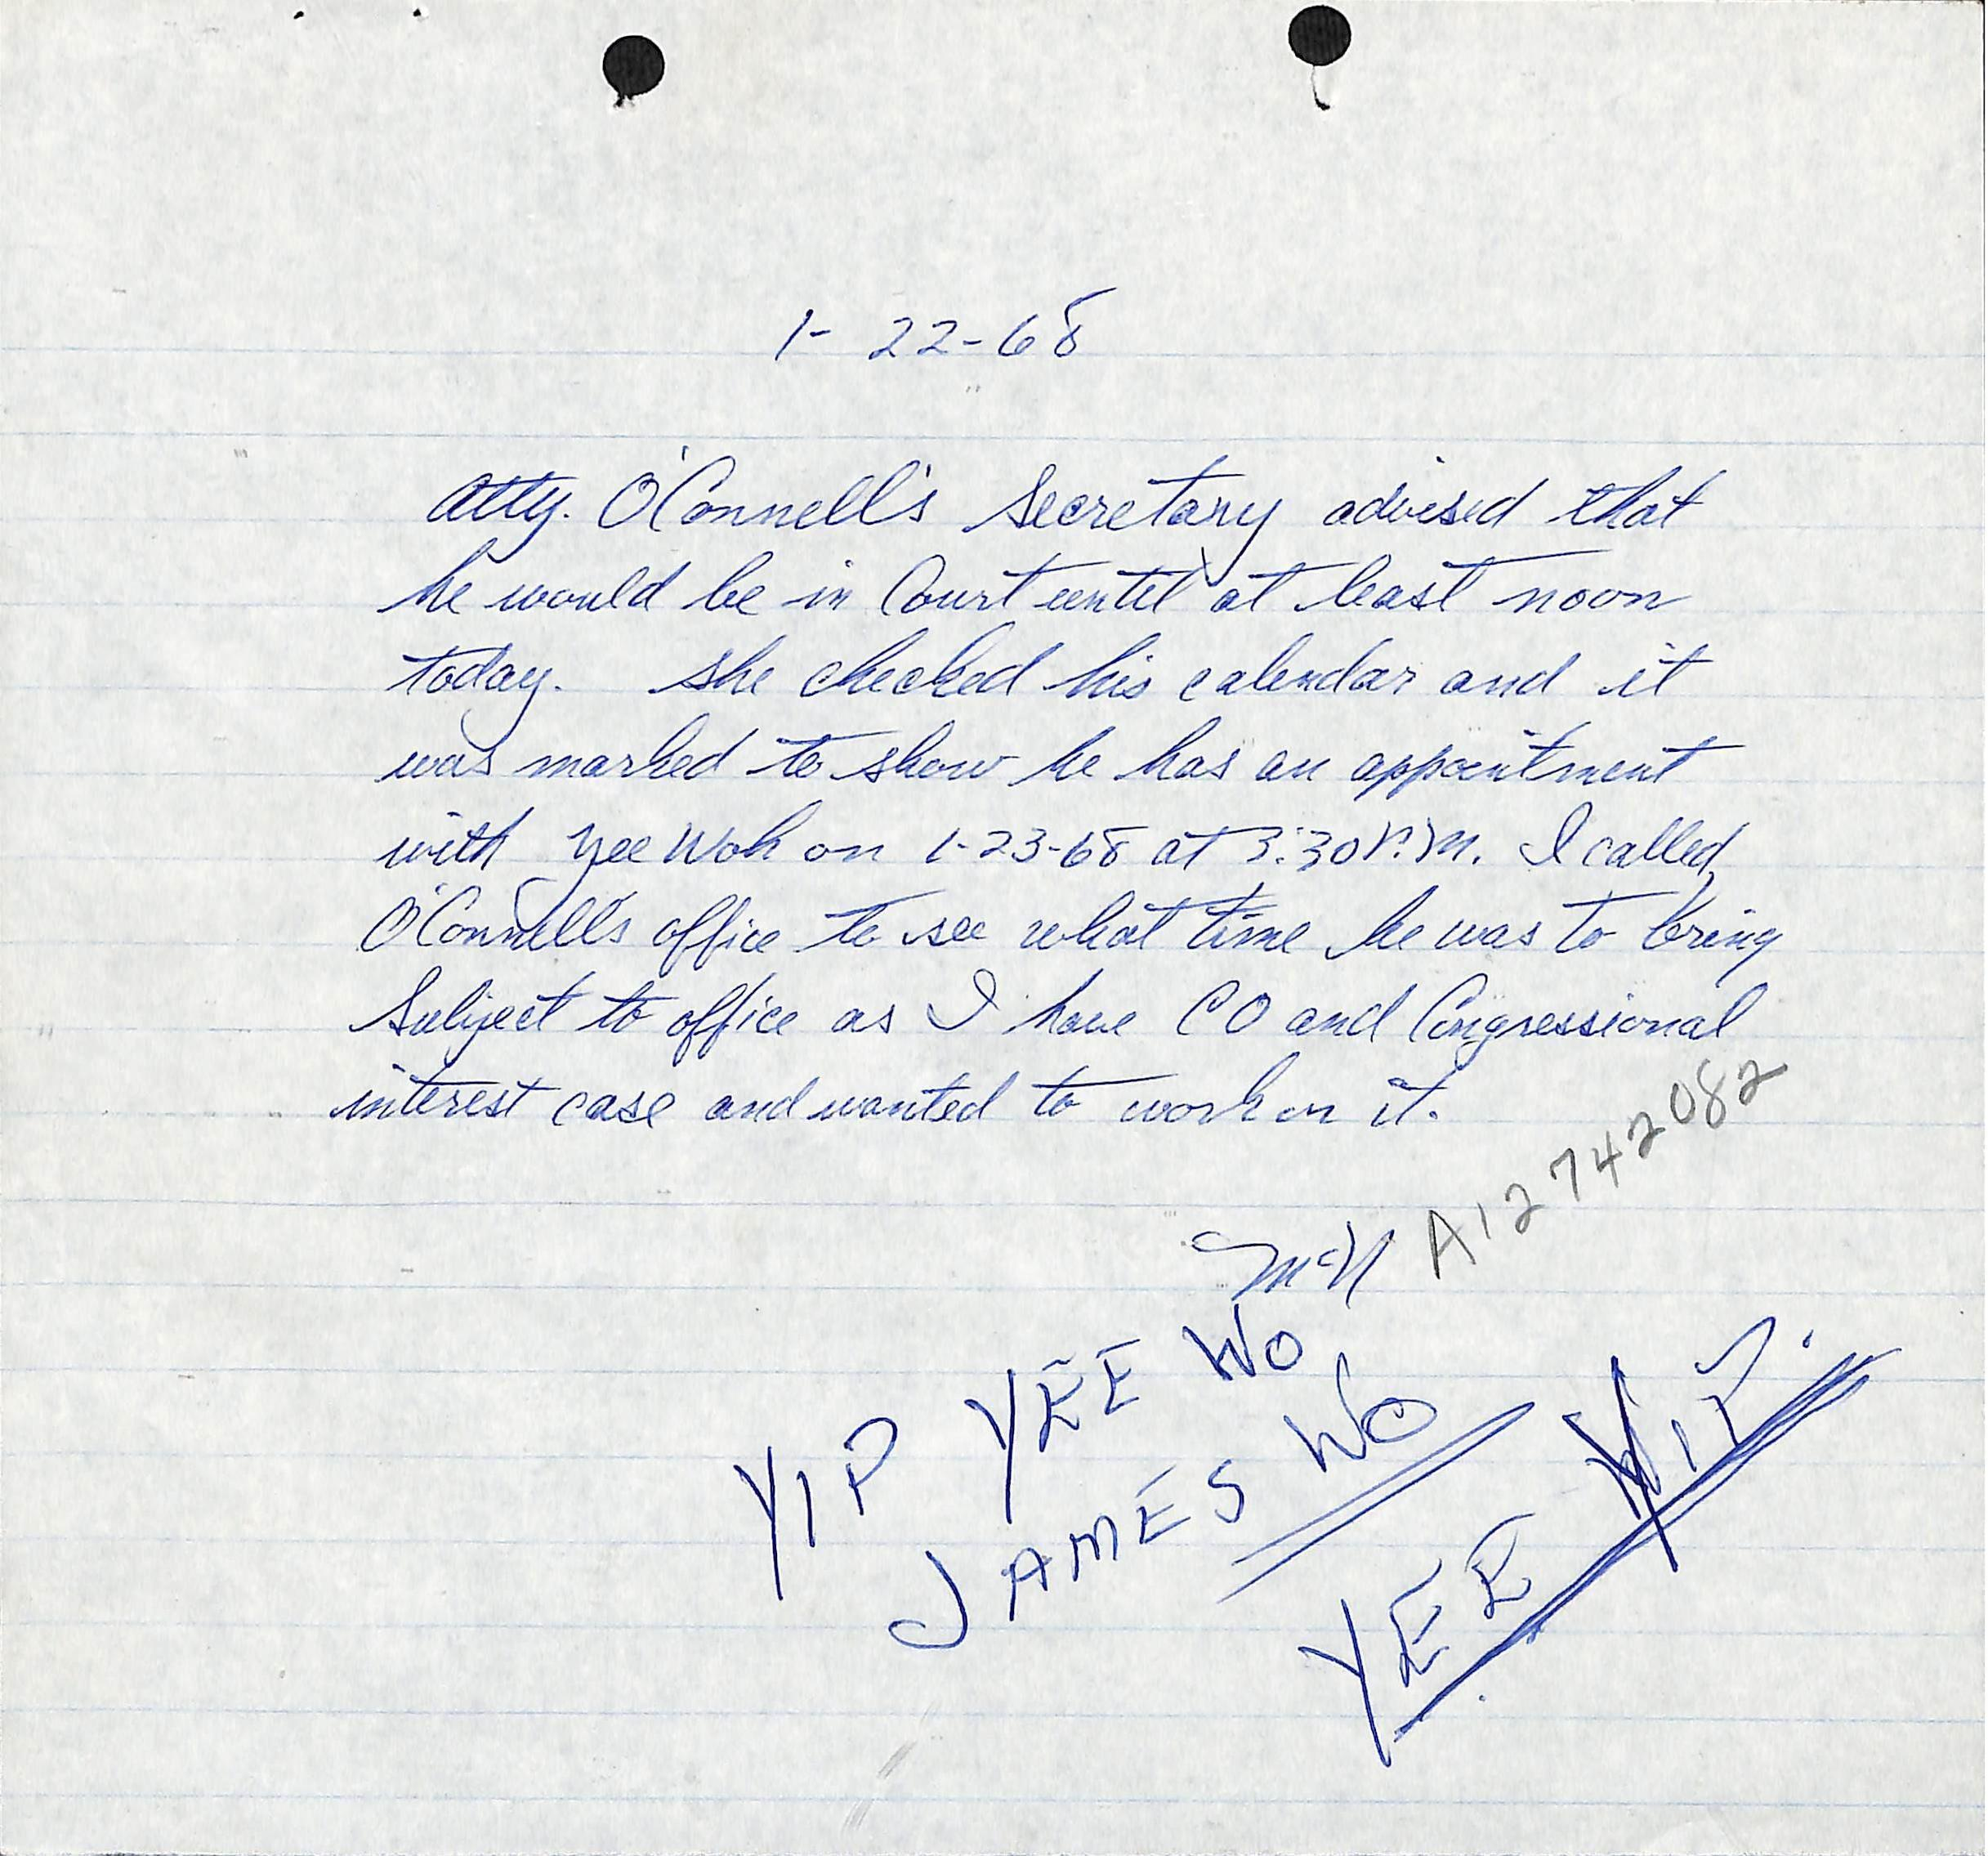 1-22-68
Atty. O'Connell's Secretary advised that
he would be in Court until at least noon
today. She checked his calendar and it
was marked to show he has an appointment
with Yee Wok on 1-23-68 at 3:30 P.M. I called
O'Connell's office to see what time he was to bring
Subject to office as I have CO and Congressional
interest case and wanted to work on it.
McN
A12 742082
YIP YEE WO
JAMES WO
YEE YIP.